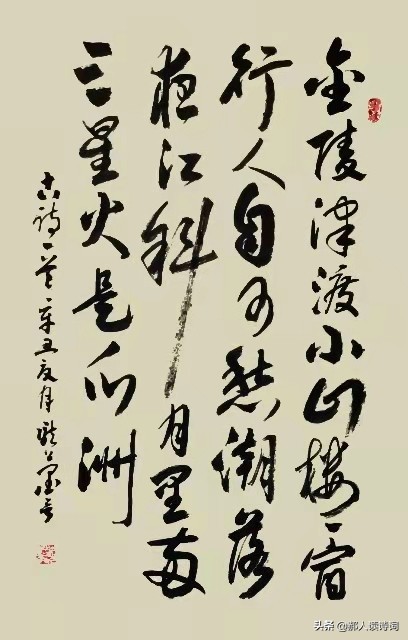 金陵津渡小山樓一宿
行人自可愁潮落
夜江斜月里兩
三星火是瓜洲
古詩一首辛丑夏月
头条 @郝人读诗词